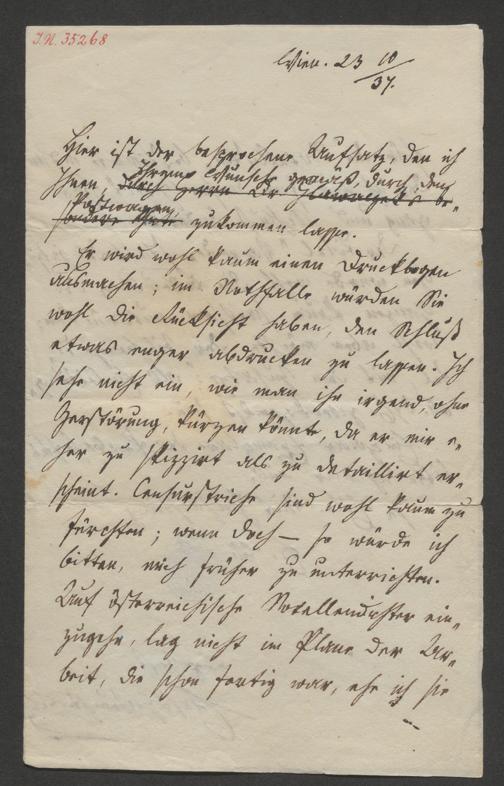 I.N. 35268
Wien. 23 10/37.
Hier ist der besprochene Aufsatz, den ich
Ihrem Wunsche gemäß, durch den
Ihnen, durch Herrn Dr be-
Postwagen
sondere zukommen lasse.
Er wird wohl kaum einen Druckbogen
ausmachen; im Nothfalle würden Sie
wohl die Rücksicht haben, den Schluß
etwas enger abdrucken zu lassen. Ich
sehe nicht ein, wie man ihn irgend, ohne
Zerstörung, kürzen könnte, da er mir e-
her zu skizzirt als zu detaillirt er-
scheint. Censurstriche sind wohl kaum zu
fürchten; wenn doch – so würde ich
bitten, mich früher zu unterrichten.
Auf österreichische Novellendichter ein-
zugehn, lag nicht im Plane der Ar-
beit, die schon fertig war, ehe ich sie